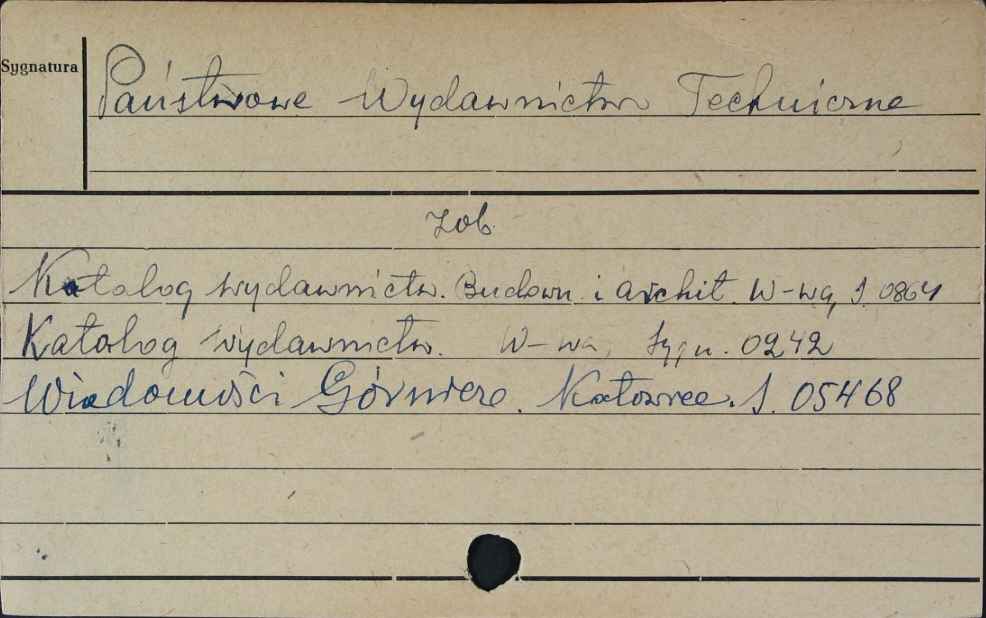 Sygnatura
Państwowe Wydawnictwo Techniczne
Zob.
Katalog wydawnictw. Budown. i archit. W-wa, S. 0864
Katalog Wydawnictw. W-wa, Sygn. 0242
Wiadomości Górnicze. Katowice. S. 05468